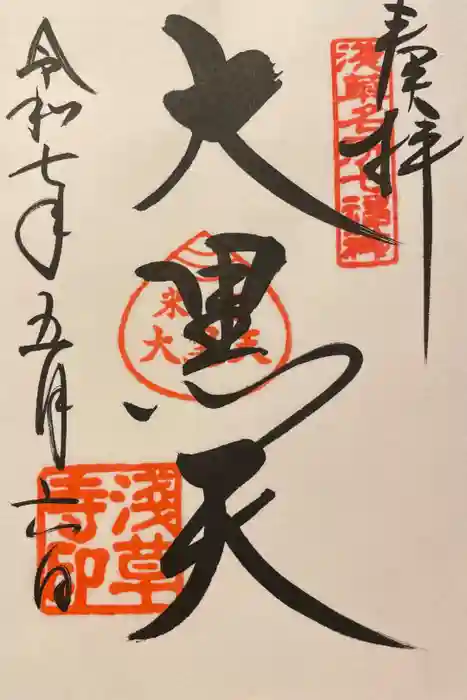 奉拝
浅草名所七福神
大黒天
米びつ
大黒天
令和七年五月六日
浅草
寺印